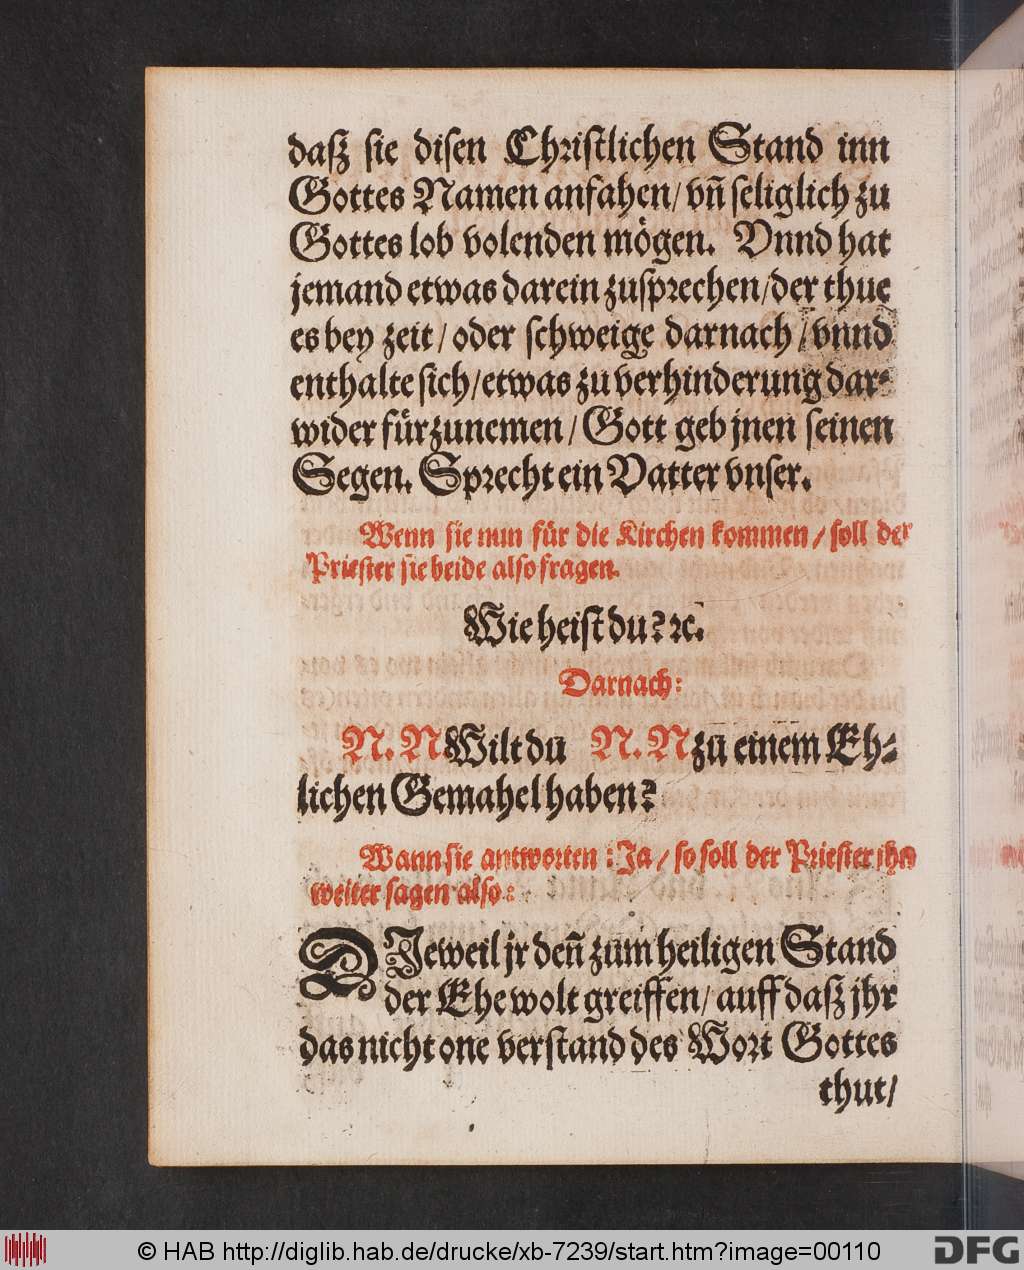 daß sie disen Christlichen Stand inn
Gottes Namen anfahen/ vñ seliglich zu
Gottes lob volenden mögen. Vnnd hat
jemand etwas darein zusprechen/der thue
es bey zeit/ oder schweige darnach/ vnnd
enthalte sich/etwas zu verhinderung dar-
wider fürzunemen/ Gott geb jnen seinen
Segen. Sprecht ein Vatter vnser.
Wenn sie nun für die Kirchen kommen/ soll der
Priester sie beide also fragen.
Wie heist du? ꝛc.
Darnach:
N. N Wilt du N. N zu einem Eh-
lichen Gemahel haben?
Wann sie antworten: Ja/ so soll der Priester jhn
weiter sagen also:
DJeweil jr deñ zum heiligen Stand
der Ehe wolt greiffen/ auff daß jhr
das nicht one verstand des Wort Gottes
thut/
© HAB http://diglib.hab.de/drucke/xb-7239/start.htm?image=00110
DFG